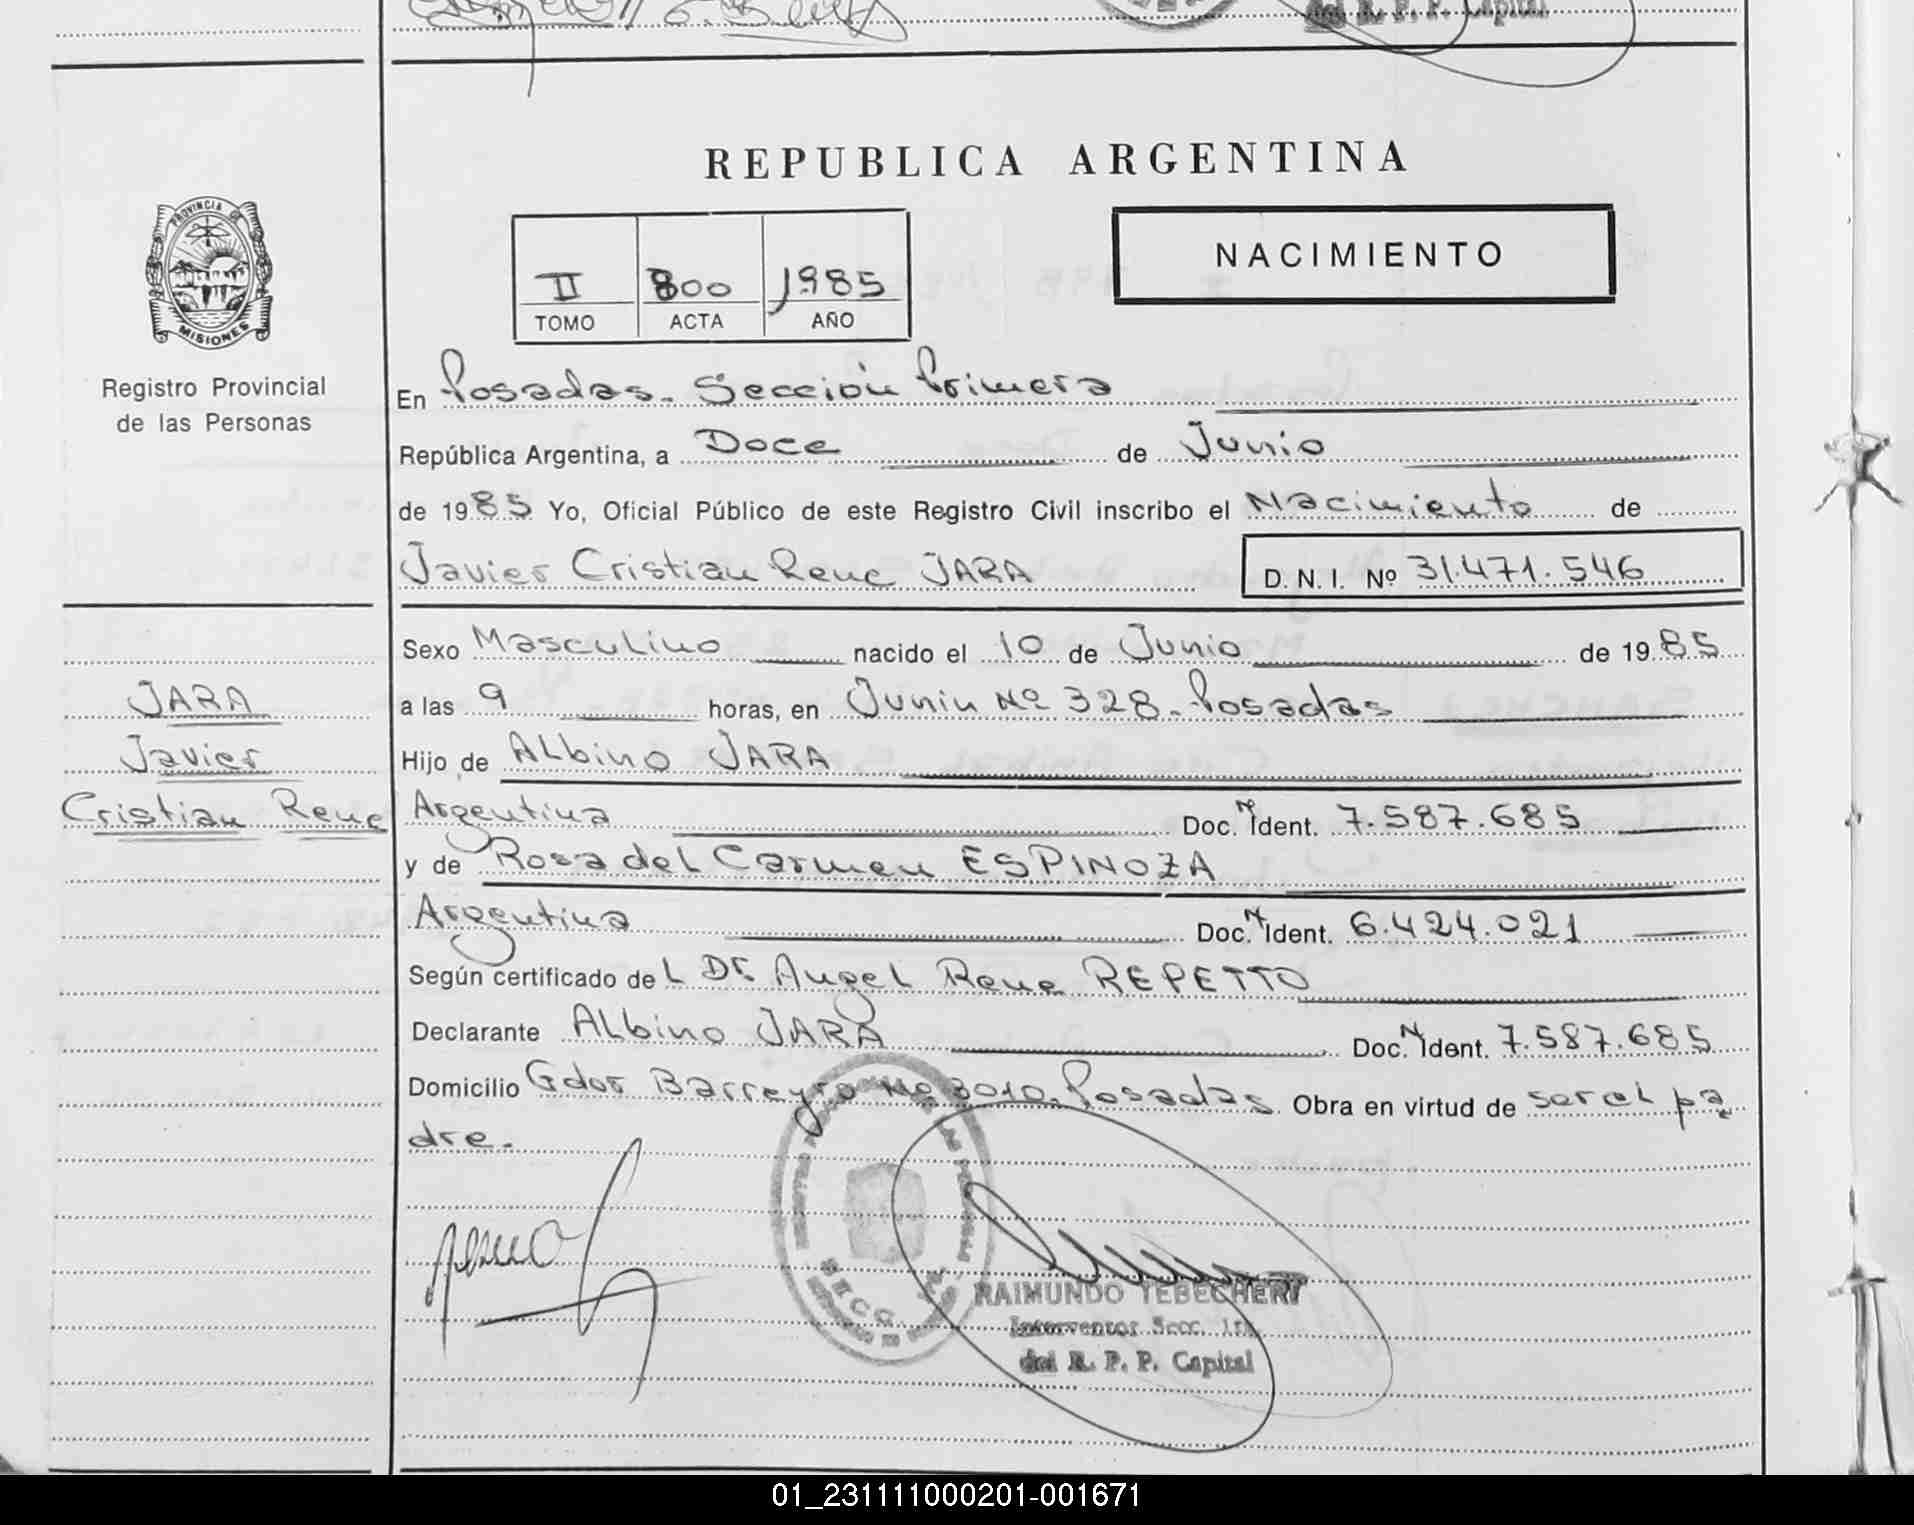 del R. P. P. Capital
REPUBLICA ARGENTINA
PROVINCIA DE
MISIONES
Registro Provincial
de las Personas
NACIMIENTO
II 800 1985
TOMO ACTA AÑO
En Posadas. Sección Primera
República Argentina, a Doce de Junio
de 1985 Yo, Oficial Público de este Registro Civil inscribo el Nacimiento de
Javier Cristian Rene JARA D.N.I. Nº 31.471.546
Sexo Masculino nacido el 10 de Junio de 1985
JARA
Javier
Cristian Rene
a las 9 horas, en Junin Nº 328. Posadas
Hijo de ALbino JARA
Argentina Doc. N Ident. 7.587.685
y de Rosa deL Carmen ESPINOZA
Argentina Doc. N Ident. 6.424.021
Según certificado de L Dr. Angel Rene REPETTO
Declarante ALbino JARA Doc. N Ident. 7.587.685
Domicilio Gdor Barreyro Nº 3010. Posadas Obra en virtud de ser eL pa
dre.
SECC
RAIMUNDO YEBECHERI
Interventor Secc. 1ra
del R. P. P. Capital
01_231111000201-001671